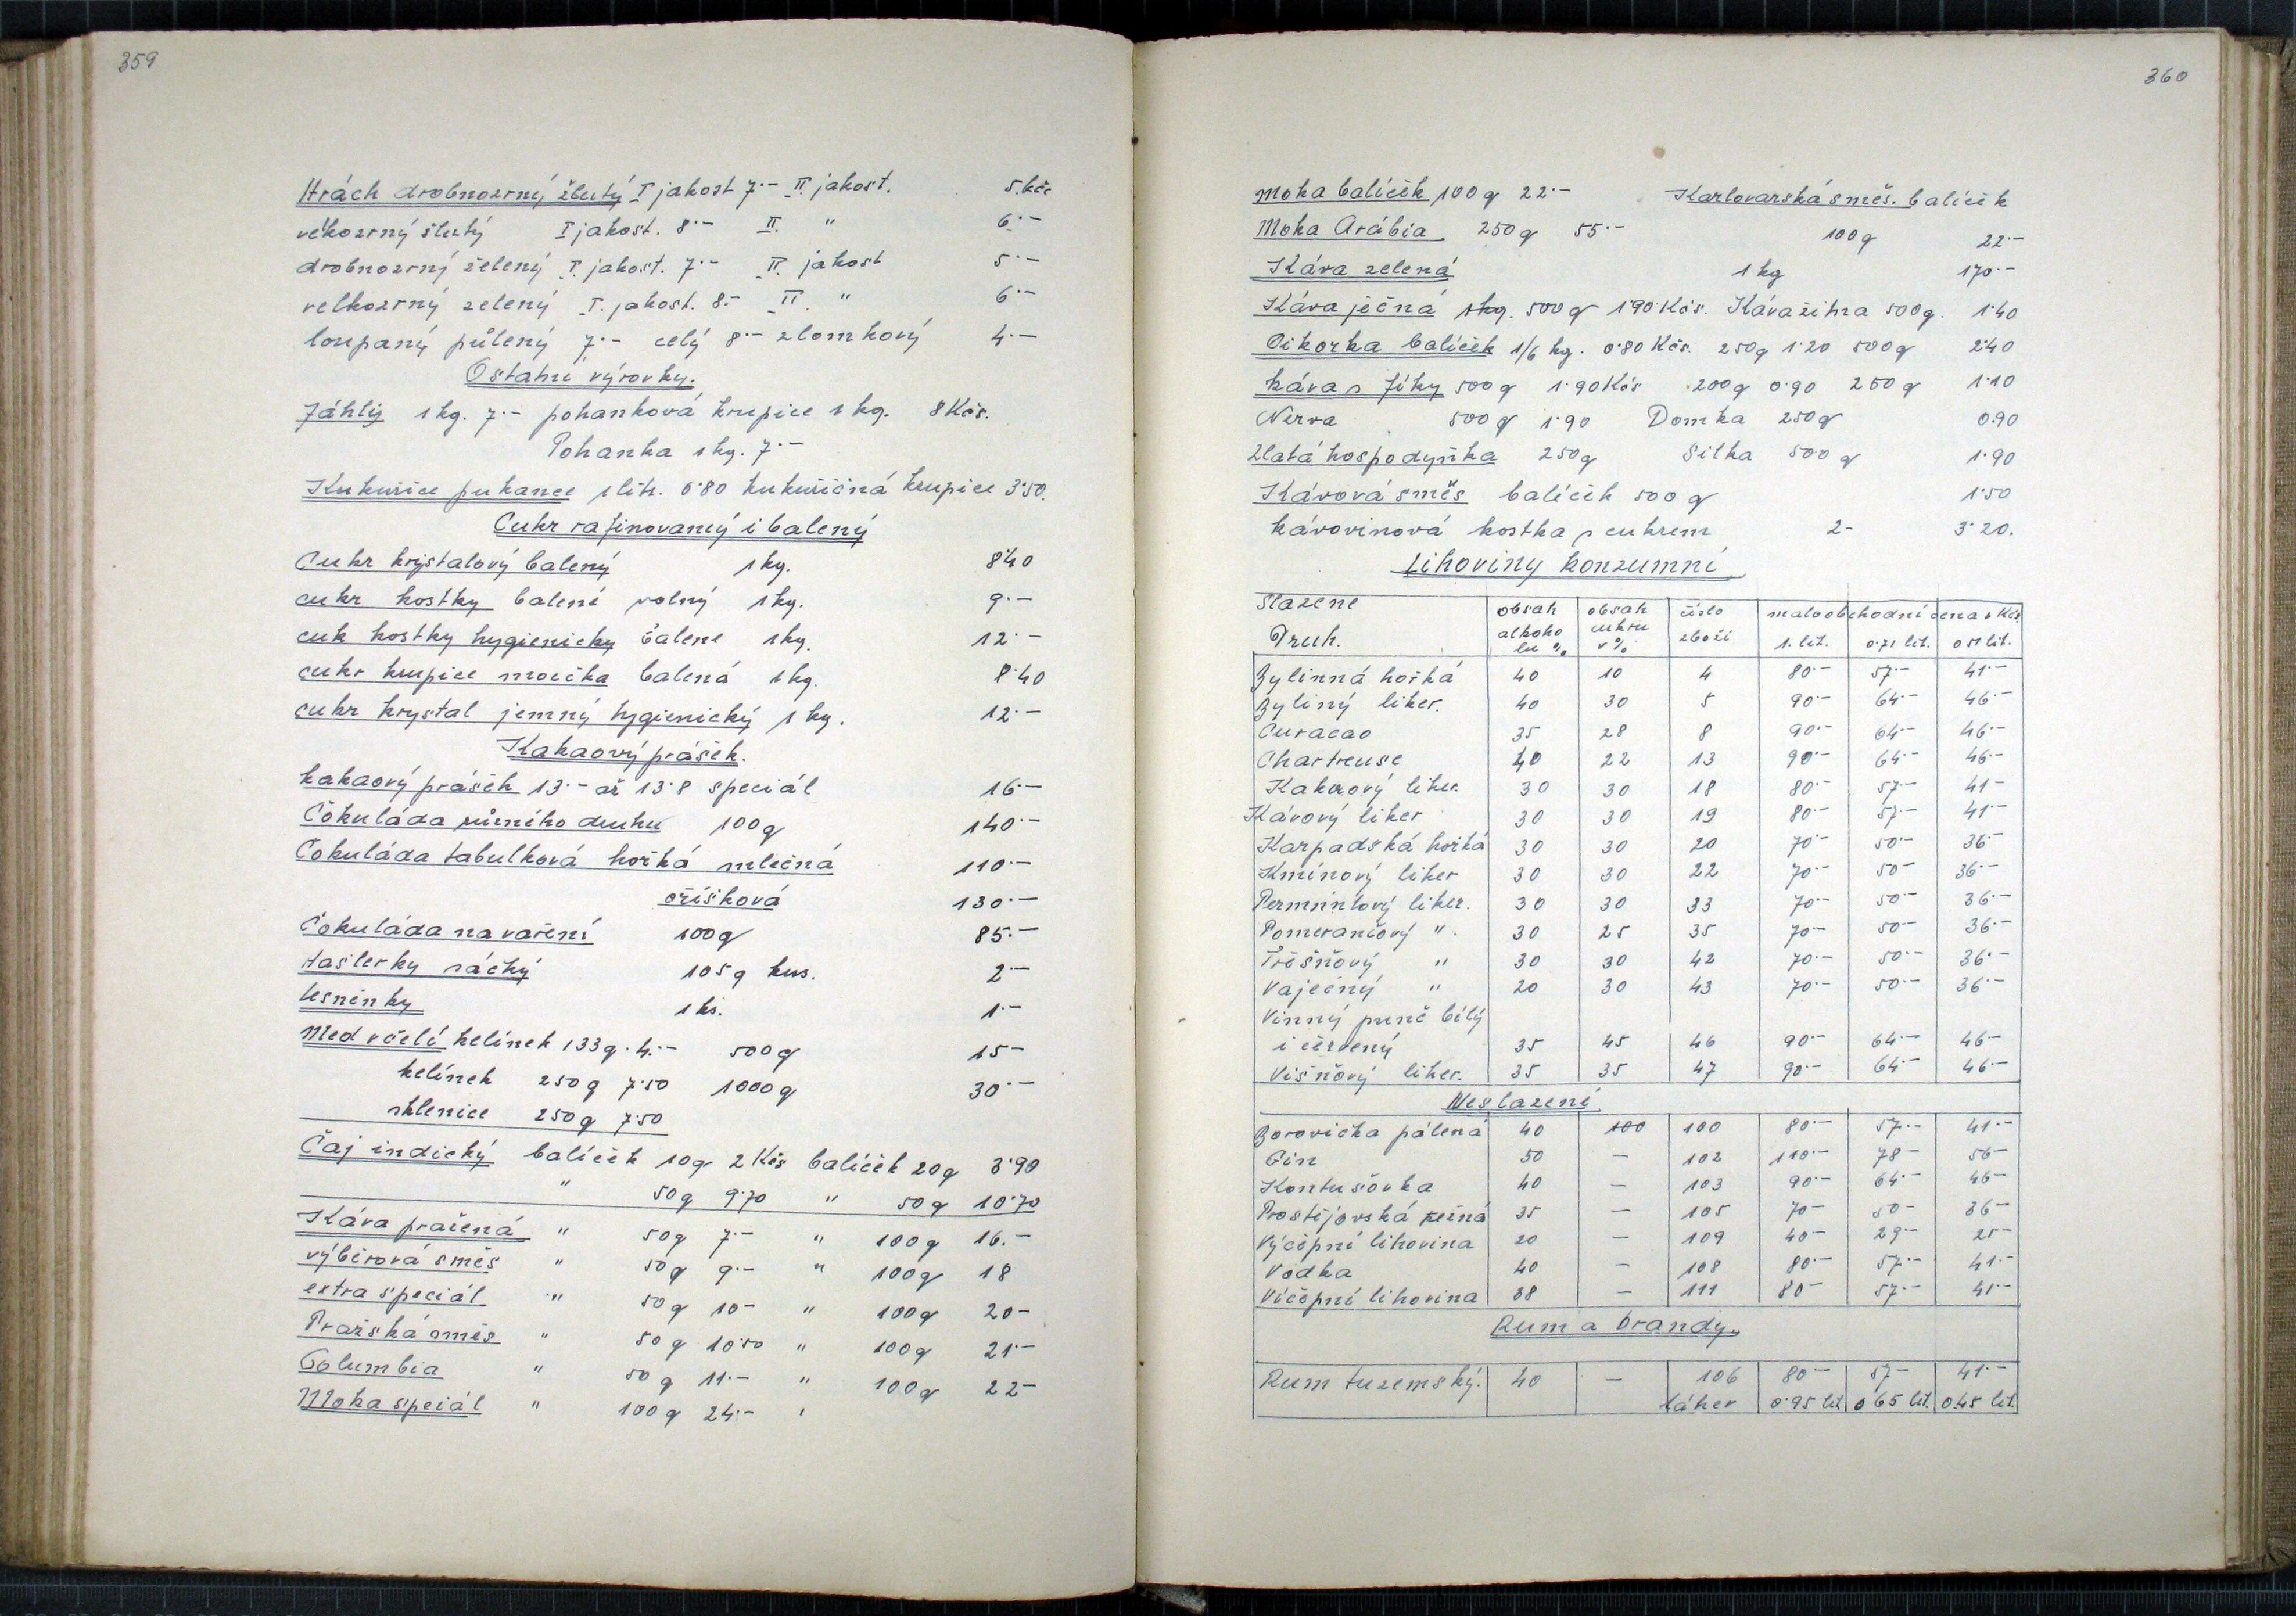 359
Hrách drobnozrný, žlutý I jakost 7·– II. jakost. 5.kčs
vekozrný žlutý I jakost. 8·– II. " 6·–
drobnozrný zelený I. jakost. 7·– II. jakost 5·–
velkozrný zelený I. jakost. 8.– II. " 6·–
loupaný půlený 7·– celý 8·– zlomkový 4·–
Ostatní výrovky.
Jáhly 1 kg. 7·– pohanková krupice 1 kg. 8 Kčs.
Pohanka 1 kg. 7·–
Kukuřice pukance 1 litr. 6·80 kukuřičná krupice 3·50.
Cukr rafinovaný i balený
Cukr krystalový balený 1 kg. 8·40
cukr kostky balení volný 1 kg. 9·–
cuk kostky hygienicky balené 1 kg. 12·–
cukr krupice moučka balená 1 kg. 8·40
cukr krystal jemný hygienický 1 kg. 12·–
Kakaový prášek.
kakaový prášek 13·– až 13·8 speciál 16·–
Čokuláda různého druhu 100g 140·–
Čokuláda tabulková hořká mlečná 110·–
oříšková 130·–
Čokuláda na vaření 100g 85·–
Hašlerky sáčky 105g kus. 2·–
Lesněnky 1 ks. 1·–
Med včelí kelínek 133g. 4·– 500g 15–
kelínek 250g 7·50 1000g 30·–
sklenice 250g 7·50
Čaj indický balíček 10g 2 Kčs balíček 20g 3·90
" 50g 9·70 " 50g 10·70
Káva pražená " 50g 7·– " 100g 16.–
výběrová směs " 50g 9·– " 100g 18
extra speciál " 50g 10– " 100g 20–
Pražská směs " 50g 10·50 " 100g 21·–
Columbia " 50g 11·– " 100g 22–
Moka speciál " 100g 24·–
360
Moka balíček 100g 22·– Karlovarská směs. balíček
Moka Arábia 250g 55·– 100g 22·–
Káva zelená 1 kg 170·–
Káva ječná 1kg. 500g 1·90 Kčs. Káva žitna 500g. 1·40
Cikorka balíček 1/6 kg. 0·80 Kčs. 250g 1·20 500g 2·40
káva s fíky 500g 1·90 Kčs 200g 0·90 250g 1·10
Nerva 500g 1·90 Domka 250g 0.90
Zlatá hospodyňka 250g Silka 500g 1·90
Kávová směs balíček 500g 1·50
kávovinová kostka s cukrem 2– 3·20.
Lihoviny konzumní
Slazené obsah obsah číslo maloobchodní cena v Kčs
Druh. alkoho cukru zboží 1. lit. 0·71 lit. 0 51 lit.
lu % v %
Bylinná hořká 40 10 4 80·– 57·– 41·–
Byliný likér. 40 30 5 90·– 64·– 46·–
Curacao 35 28 8 90·– 64·– 46·–
Chartreuse 40 22 13 90·– 64·– 46·–
Kakaový likér. 30 30 18 80·– 57·– 41–
Kávový likér 30 30 19 80·– 57·– 41·–
Karpadská hořká 30 30 20 70·– 50·– 36·–
Kmínový likér 30 30 22 70·– 50– 36·–
Permintový likér. 30 30 33 70·– 50·– 36·–
Pomerančový ". 30 25 35 70·– 50– 36·–
Třešňový " 30 30 42 70·– 50·– 36·–
Vaječný " 20 30 43 70·– 50·– 36·–
Vinný punč bílý
i červený 35 45 46 90·– 64·– 46–
Višňový likér. 35 35 47 90·– 64– 46·–
Neslazené
Borovička pálená 40 100 100 80·– 57·– 41·–
Gin 50 – 102 110·– 78– 56–
Kontušovka 40 – 103 90·– 64·– 46–
Prostějovská režná 35 – 105 70– 50– 36–
Výčepní lihovina 20 – 109 40– 29·– 21–
Vodka 40 – 108 80·– 57·– 41·–
Víčepní lihovina 38 – 111 80– 57·– 41–
Rum a brandy.
Rum tuzemský. 40 – 106 80– 57– 41·–
láhev 0·95 lit 0·65 lit. 0.48 lit.